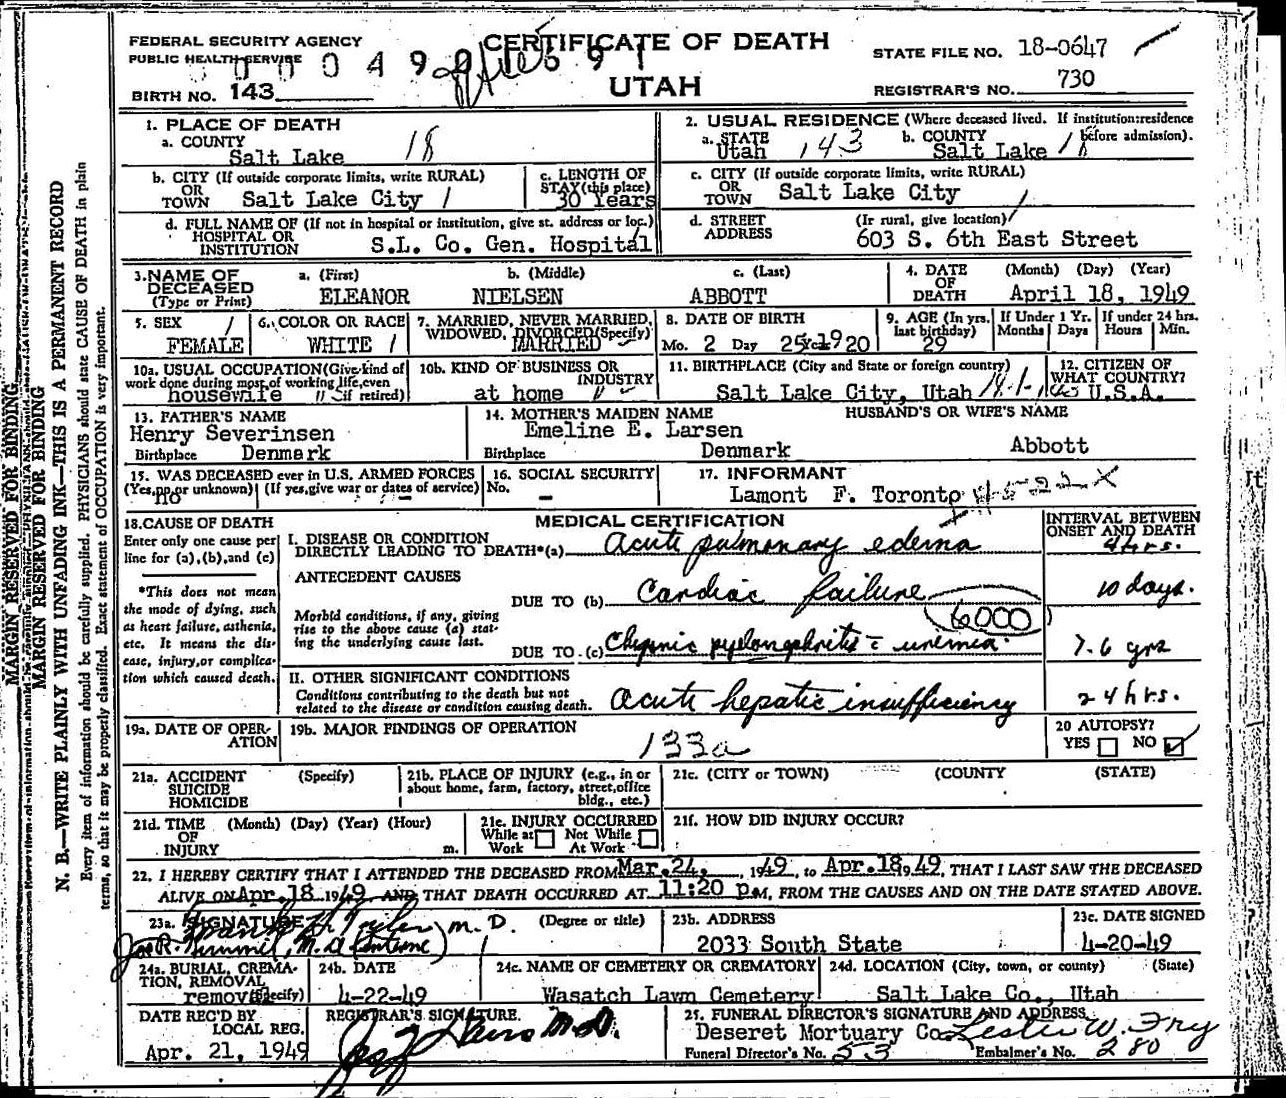 FEDERAL SECURITY AGENCY
PUBLIC HEALTH SERVICE
CERTIFICATE OF DEATH
UTAH
STATE FILE NO. 18-0647
BIRTH NO. 143
REGISTRAR'S NO. 730
1. PLACE OF DEATH
a. COUNTY
Salt Lake 18
2. USUAL RESIDENCE (Where deceased lived. If institution:residence before admission).
a. STATE Utah 143 b. COUNTY Salt Lake
b. CITY (If outside corporate limits, write RURAL)
OR TOWN Salt Lake City
c. LENGTH OF STAY (this place)
30 Years
c. CITY (If outside corporate limits, write RURAL)
OR TOWN Salt Lake City
d. FULL NAME OF (If not in hospital or institution, give st. address or loc.)
HOSPITAL OR INSTITUTION S.L. Co. Gen. Hospital
d. STREET ADDRESS (If rural, give location)
603 S. 6th East Street
3. NAME OF DECEASED (Type or Print)
a. (First) b. (Middle) c. (Last)
ELEANOR NIELSEN ABBOTT
4. DATE OF DEATH (Month) (Day) (Year)
April 18, 1949
5. SEX
FEMALE
6. COLOR OR RACE
WHITE
7. MARRIED, NEVER MARRIED, WIDOWED, DIVORCED (Specify)
MARRIED
8. DATE OF BIRTH
Mo. 2 Day 25 Yr. 1920
9. AGE (In yrs. last birthday)
29
If Under 1 Yr. Months Days
If under 24 hrs. Hours Min.
10a. USUAL OCCUPATION (Give kind of work done during most of working life, even if retired)
housewife
10b. KIND OF BUSINESS OR INDUSTRY
at home
11. BIRTHPLACE (City and State or foreign country)
Salt Lake City, Utah
12. CITIZEN OF WHAT COUNTRY?
U.S.A.
13. FATHER'S NAME
Henry Severinsen
Birthplace Denmark
14. MOTHER'S MAIDEN NAME
Emeline E. Larsen
Birthplace Denmark
HUSBAND'S OR WIFE'S NAME
Abbott
15. WAS DECEASED ever in U.S. ARMED FORCES
(Yes, no or unknown) (If yes, give war or dates of service)
no -
16. SOCIAL SECURITY No.
-
17. INFORMANT
Lamont F. Toronto
18. CAUSE OF DEATH
Enter only one cause per line for (a), (b), and (c)
*This does not mean the mode of dying, such as heart failure, asthenia, etc. It means the disease, injury, or complication which caused death.
MEDICAL CERTIFICATION
INTERVAL BETWEEN ONSET AND DEATH
I. DISEASE OR CONDITION
DIRECTLY LEADING TO DEATH*(a) Acute pulmonary edema 4 hrs.
ANTECEDENT CAUSES
DUE TO (b) Cardiac failure 10 days.
6000
Morbid conditions, if any, giving rise to the above cause (a) stating the underlying cause last.
DUE TO (c) Chronic pyelonephritis = uremia
7.6 yrs
II. OTHER SIGNIFICANT CONDITIONS
Conditions contributing to the death but not related to the disease or condition causing death.
Acute hepatic insufficiency 24 hrs.
19a. DATE OF OPERATION
19b. MAJOR FINDINGS OF OPERATION
133a
20 AUTOPSY?
YES NO
21a. ACCIDENT SUICIDE HOMICIDE (Specify)
21b. PLACE OF INJURY (e.g., in or about home, farm, factory, street, office bldg., etc.)
21c. (CITY or TOWN) (COUNTY (STATE)
21d. TIME OF INJURY (Month) (Day) (Year) (Hour) m.
21e. INJURY OCCURRED
While at Work Not While At Work
21f. HOW DID INJURY OCCUR?
22. I HEREBY CERTIFY THAT I ATTENDED THE DECEASED FROM Mar. 24, 1949, to Apr. 18 1949, THAT I LAST SAW THE DECEASED
ALIVE ON Apr. 18 1949 AND THAT DEATH OCCURRED AT 11:20 p.M, FROM THE CAUSES AND ON THE DATE STATED ABOVE.
23a. SIGNATURE M.D. (Degree or title)
23b. ADDRESS
2033 South State
23c. DATE SIGNED
4-20-49
24a. BURIAL, CREMATION, REMOVAL (Specify)
removal
24b. DATE
4-22-49
24c. NAME OF CEMETERY OR CREMATORY
Wasatch Lawn Cemetery
24d. LOCATION (City, town, or county) (State)
Salt Lake Co., Utah
DATE REC'D BY LOCAL REG.
Apr. 21, 1949
REGISTRAR'S SIGNATURE.
25. FUNERAL DIRECTOR'S SIGNATURE AND ADDRESS
Deseret Mortuary Co. Leslie W. Fry
Funeral Director's No. 53 Embalmer's No. 280
MARGIN RESERVED FOR BINDING
MARGIN RESERVED FOR BINDING
N. B.—WRITE PLAINLY WITH UNFADING INK—THIS IS A PERMANENT RECORD
Every item of information should be carefully supplied. PHYSICIANS should state CAUSE OF DEATH in plain
terms, so that it may be properly classified. Exact statement of OCCUPATION is very important.